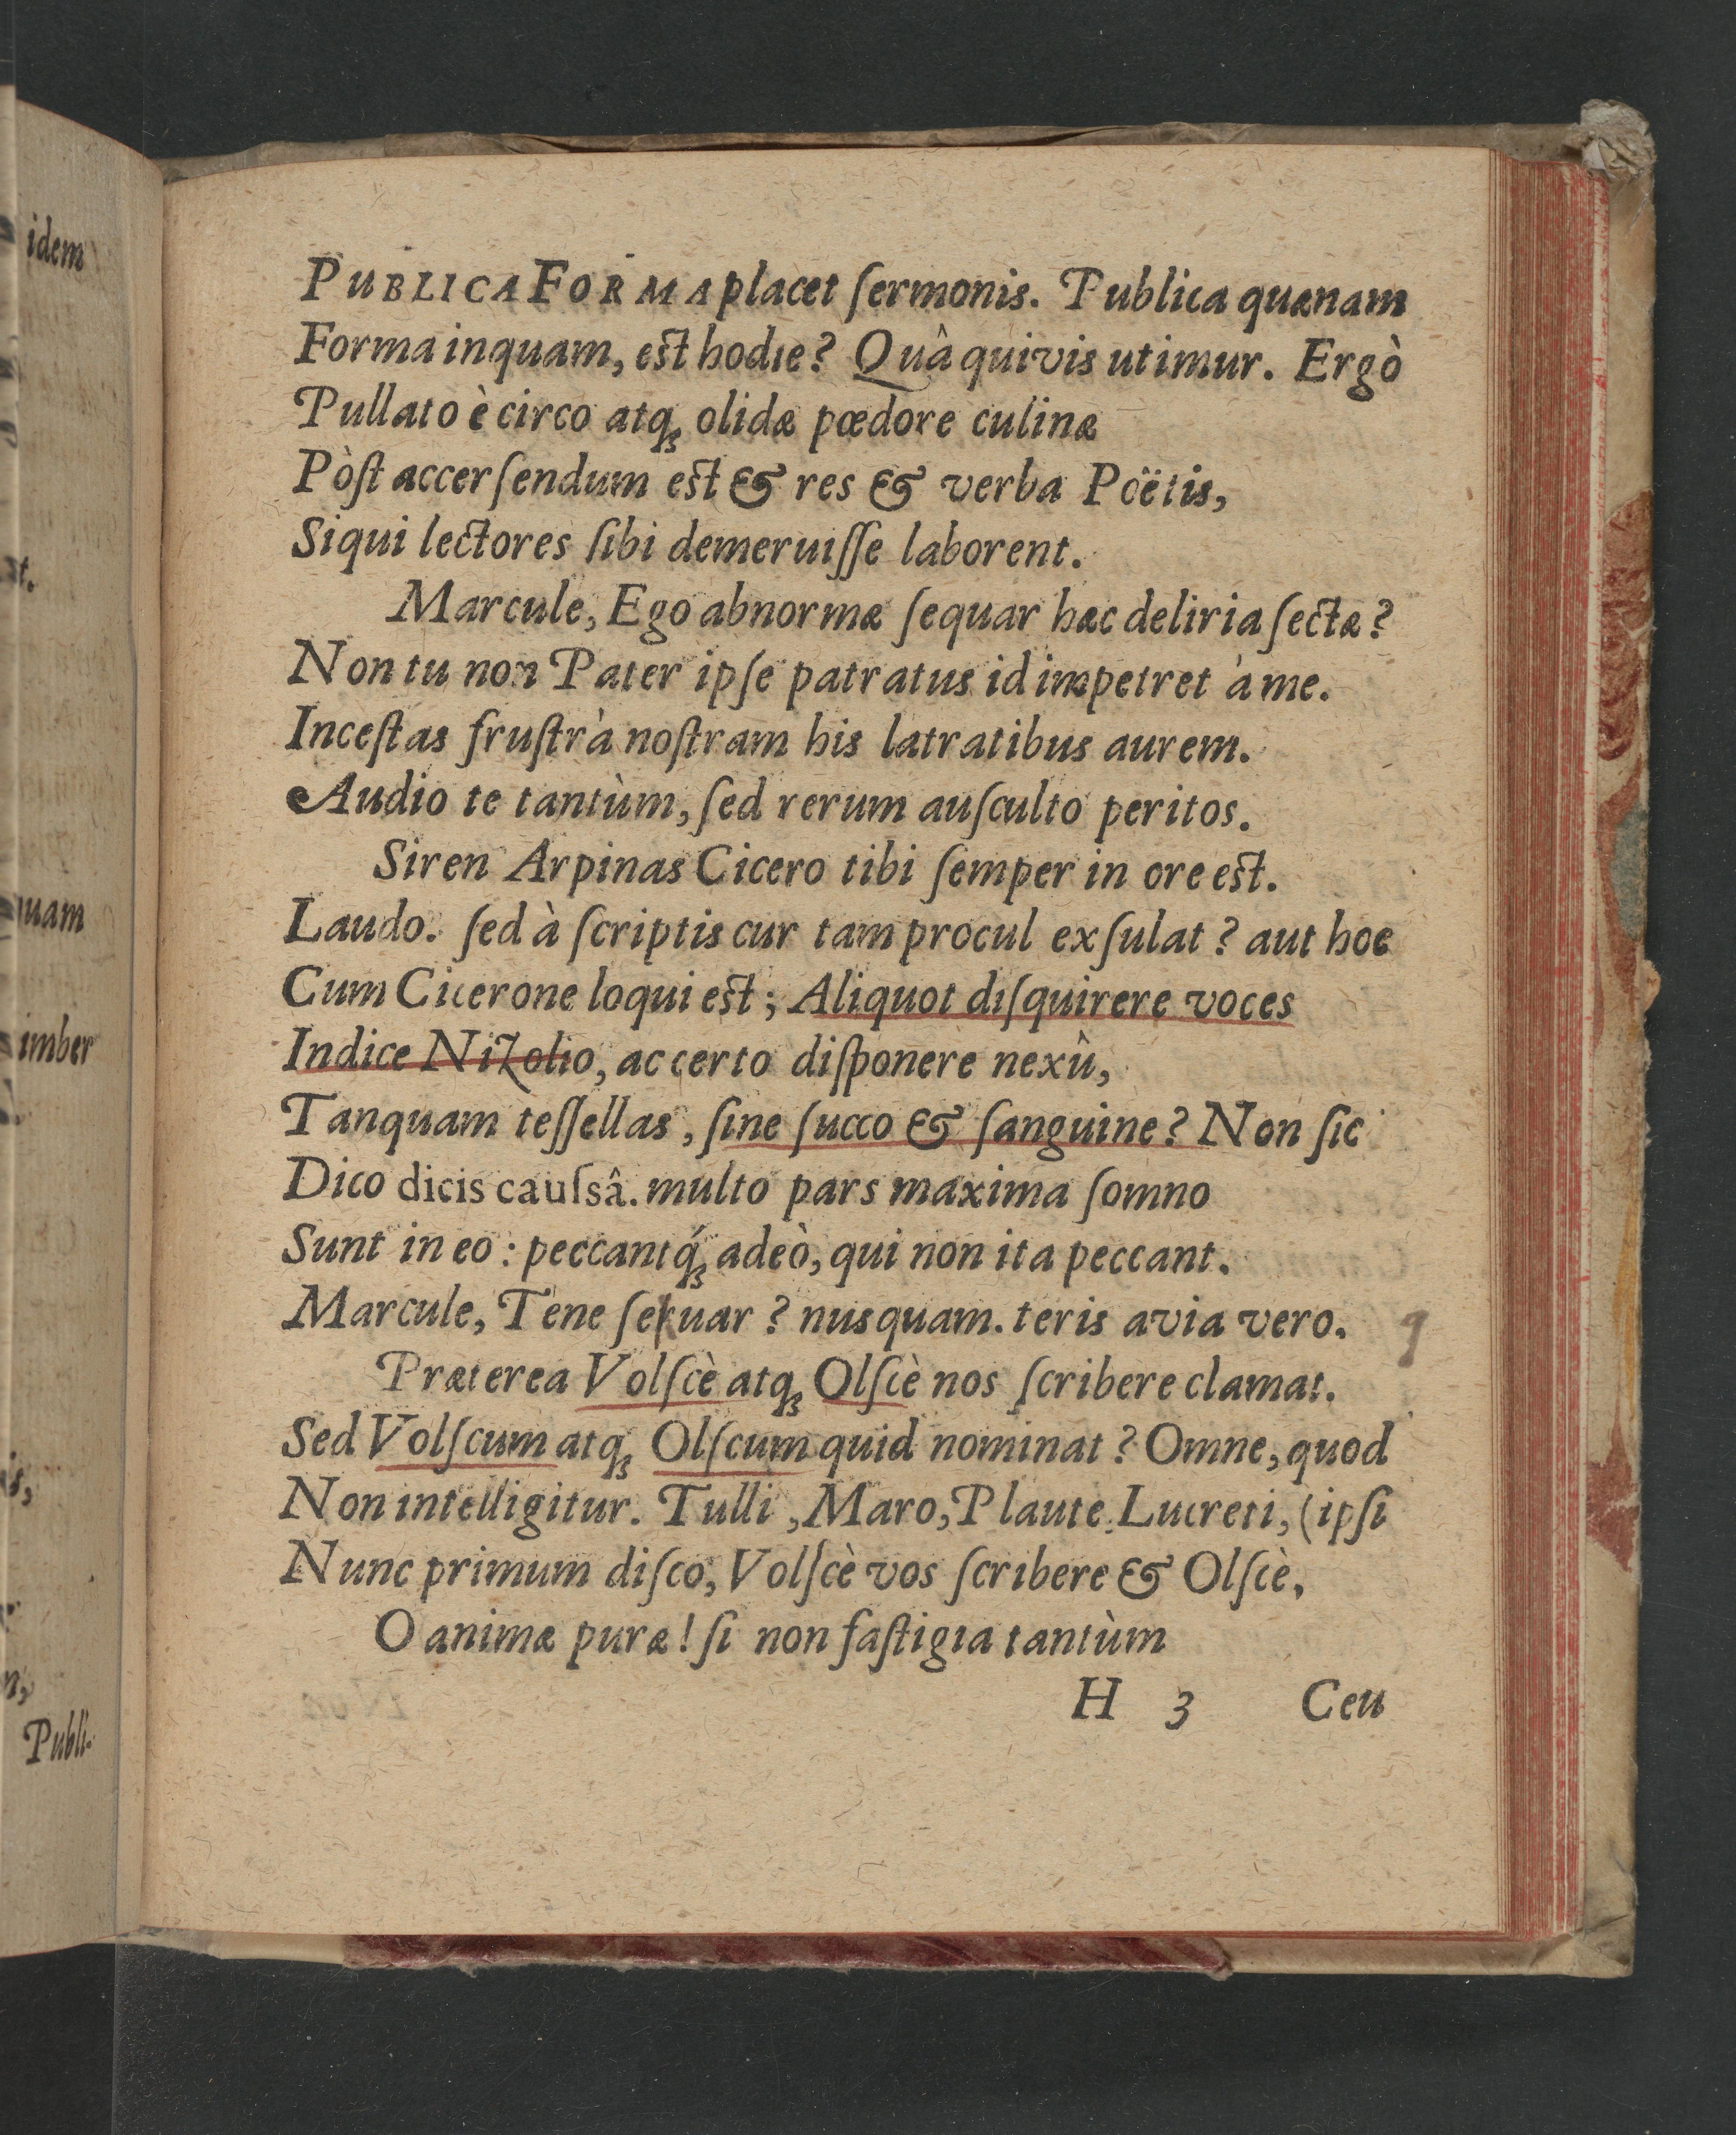 idem
at.
quam
imber
is,
n,
Publi-
PUBLICA FORMA placet ſermonis. Publica quænam
Forma inquam, eſt hodie? Quâ quivis utimur. Ergò
Pullato è circo atq; olidæ pœdore culinæ
Pòſt accerſendum eſt & res & verba Poëtis,
Siqui lectores ſibi demeruiſſe laborent.
Marcule, Ego abnormæ ſequar hæc deliria ſectæ?
Non tu non Pater ipſe patratus id impetret à me.
Inceſtas fruſtrà noſtram his latratibus aurem.
Audio te tantùm, ſed rerum auſculto peritos.
Siren Arpinas Cicero tibi ſemper in ore eſt.
Laudo. ſed à ſcriptis cur tam procul exſulat? aut hoc
Cum Cicerone loqui eſt; Aliquot diſquirere voces
Indice Nizolio, ac certo diſponere nexû,
Tanquam teſſellas, ſine ſucco & ſanguine? Non ſic
Dico dicis cauſsâ. multo pars maxima ſomno
Sunt in eo: peccantq́; adeò, qui non ita peccant.
Marcule, Tene ſekuar? nusquam. teris avia vero. q
Præterea Volſcè atq; Olſcè nos ſcribere clamat.
Sed Volſcum atq; Olſcum quid nominat? Omne, quod
Non intelligitur. Tulli, Maro, Plaute, Lucreti, (ipſi
Nunc primum diſco, Volſcè vos ſcribere & Olſcè,
O animæ puræ! ſi non faſtigia tantùm
H 3 Ceu